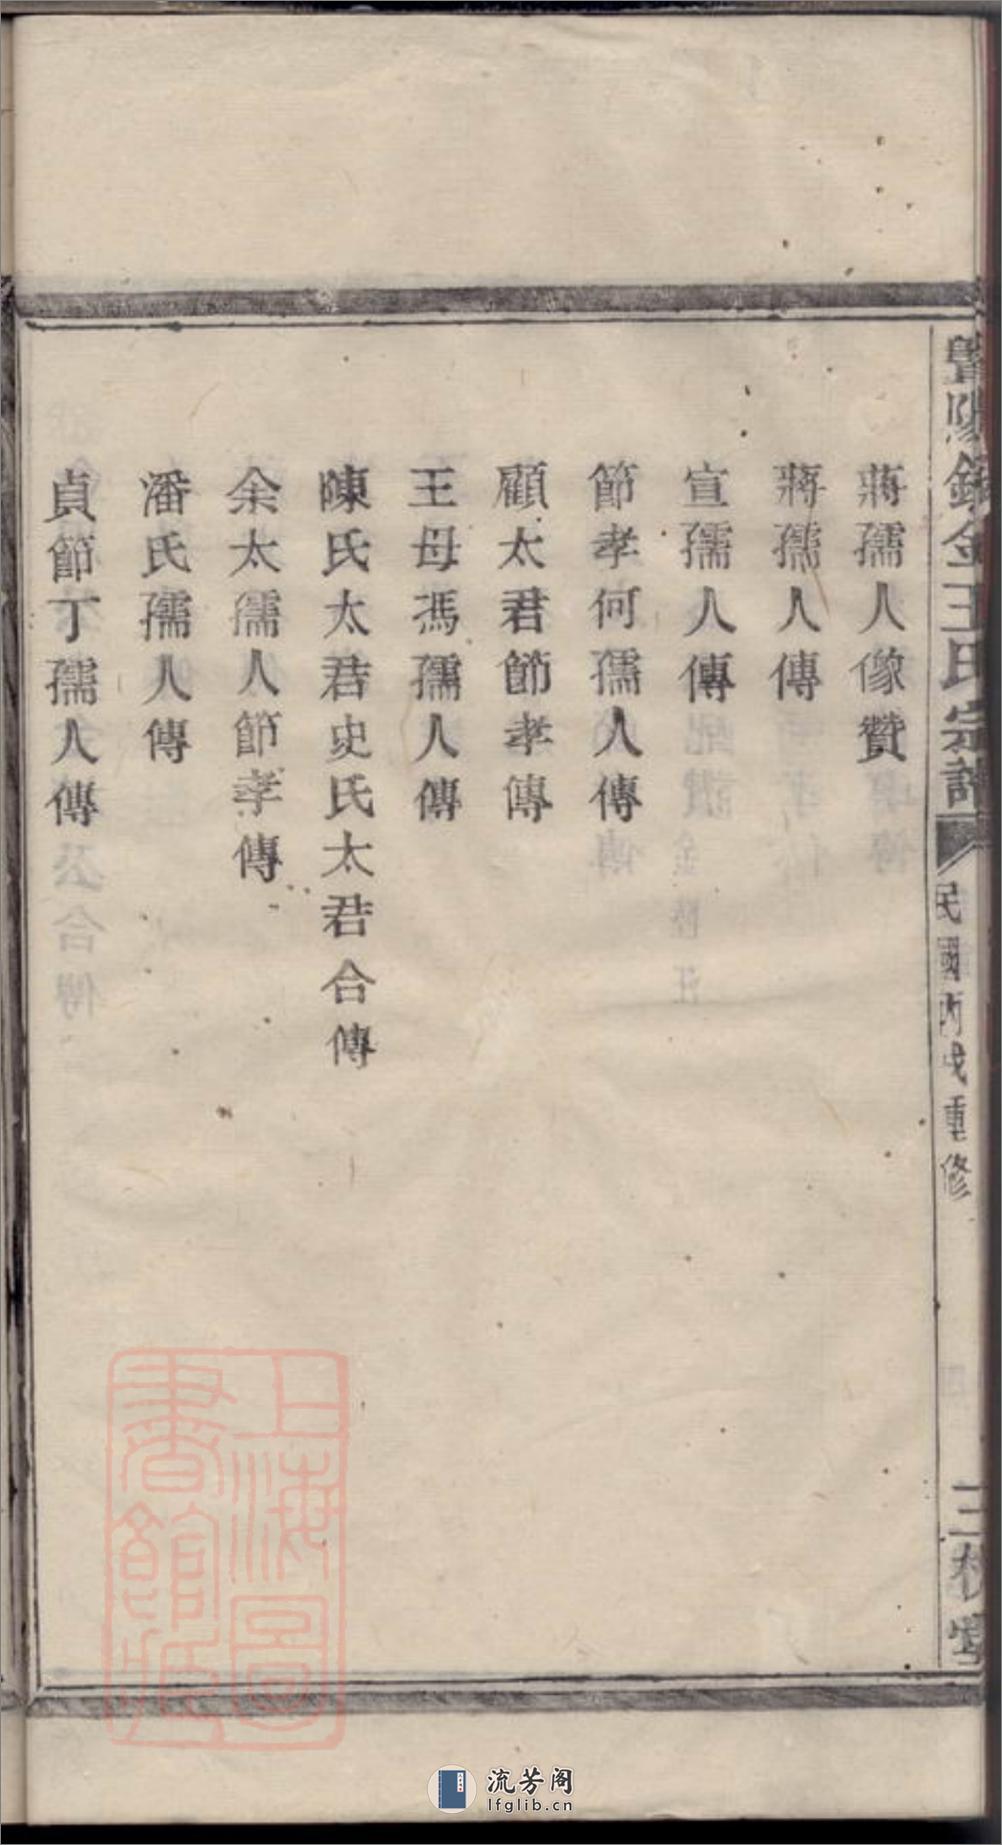 蔣孺人像贊
蔣孺人傳
宣孺人傳
節孝何孺人傳
顧太君節孝傳
王母馮孺人傳
陳氏太君史氏太君合傳
余太孺人節孝傳
潘氏孺人傳
貞節丁孺人傳
暨陽 金王氏宗譜
民國丙戌重修
三 堂
上海圖書館藏
流芳阁
lfglib.cn